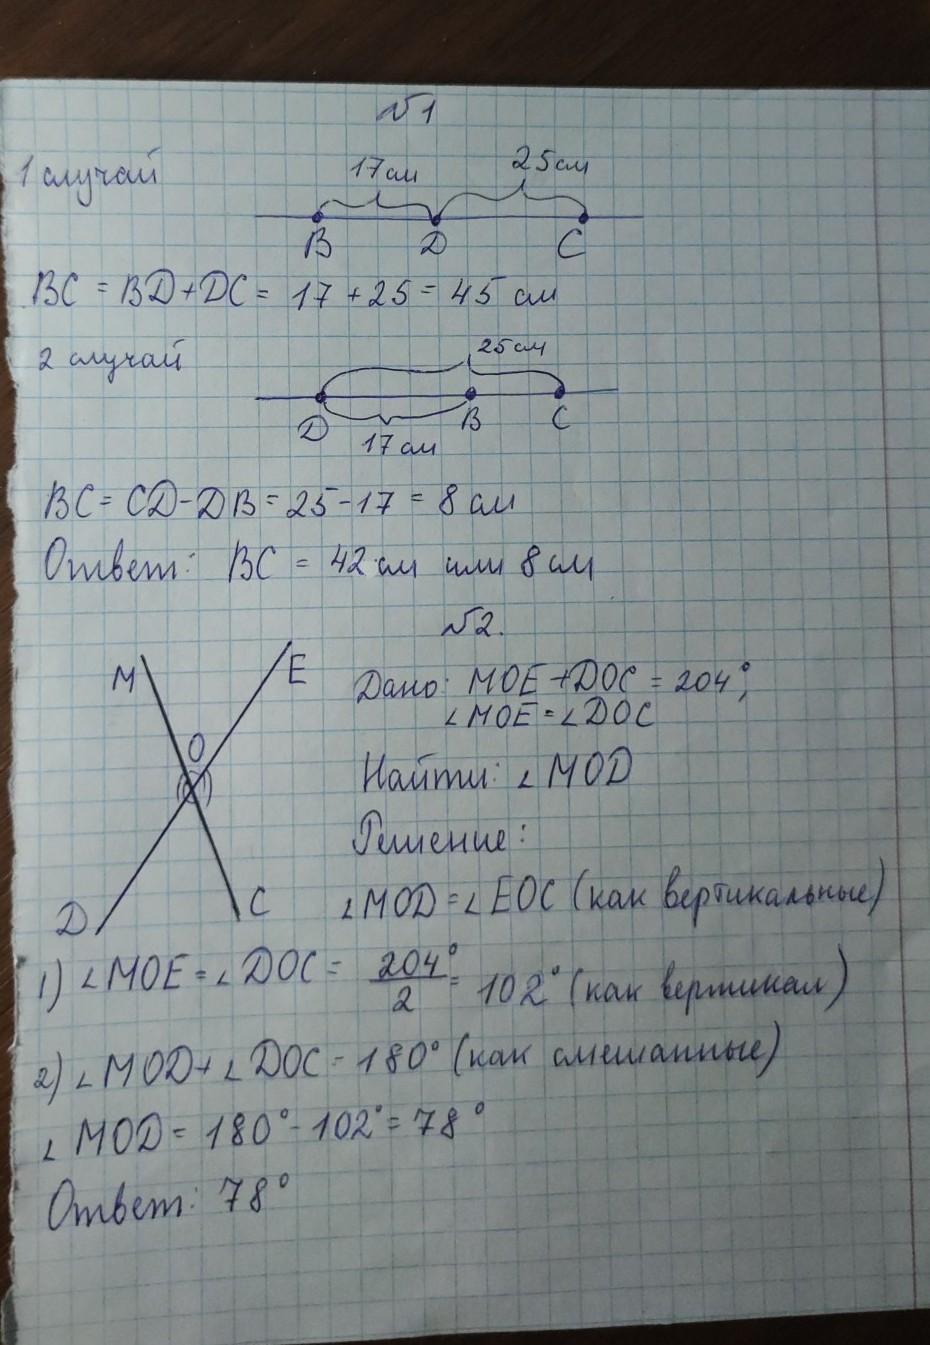 №1
1 случай
17см 25см
B D C
BC = BD+DC = 17 + 25 = 45 см
2 случай
25см
D B C
17 см
BC = CD-DB = 25-17 = 8 см
Ответ: BC = 42 см или 8 см
№2.
M E
O
D C
Дано: MOE+DOC = 204°,
∠MOE = ∠DOC
Найти: ∠MOD
Решение:
∠MOD = ∠EOC (как вертикальные)
1) ∠MOE = ∠DOC = 204°/2 = 102° (как вертикал)
2) ∠MOD + ∠DOC = 180° (как смешанные)
∠MOD = 180° - 102° = 78°
Ответ: 78°